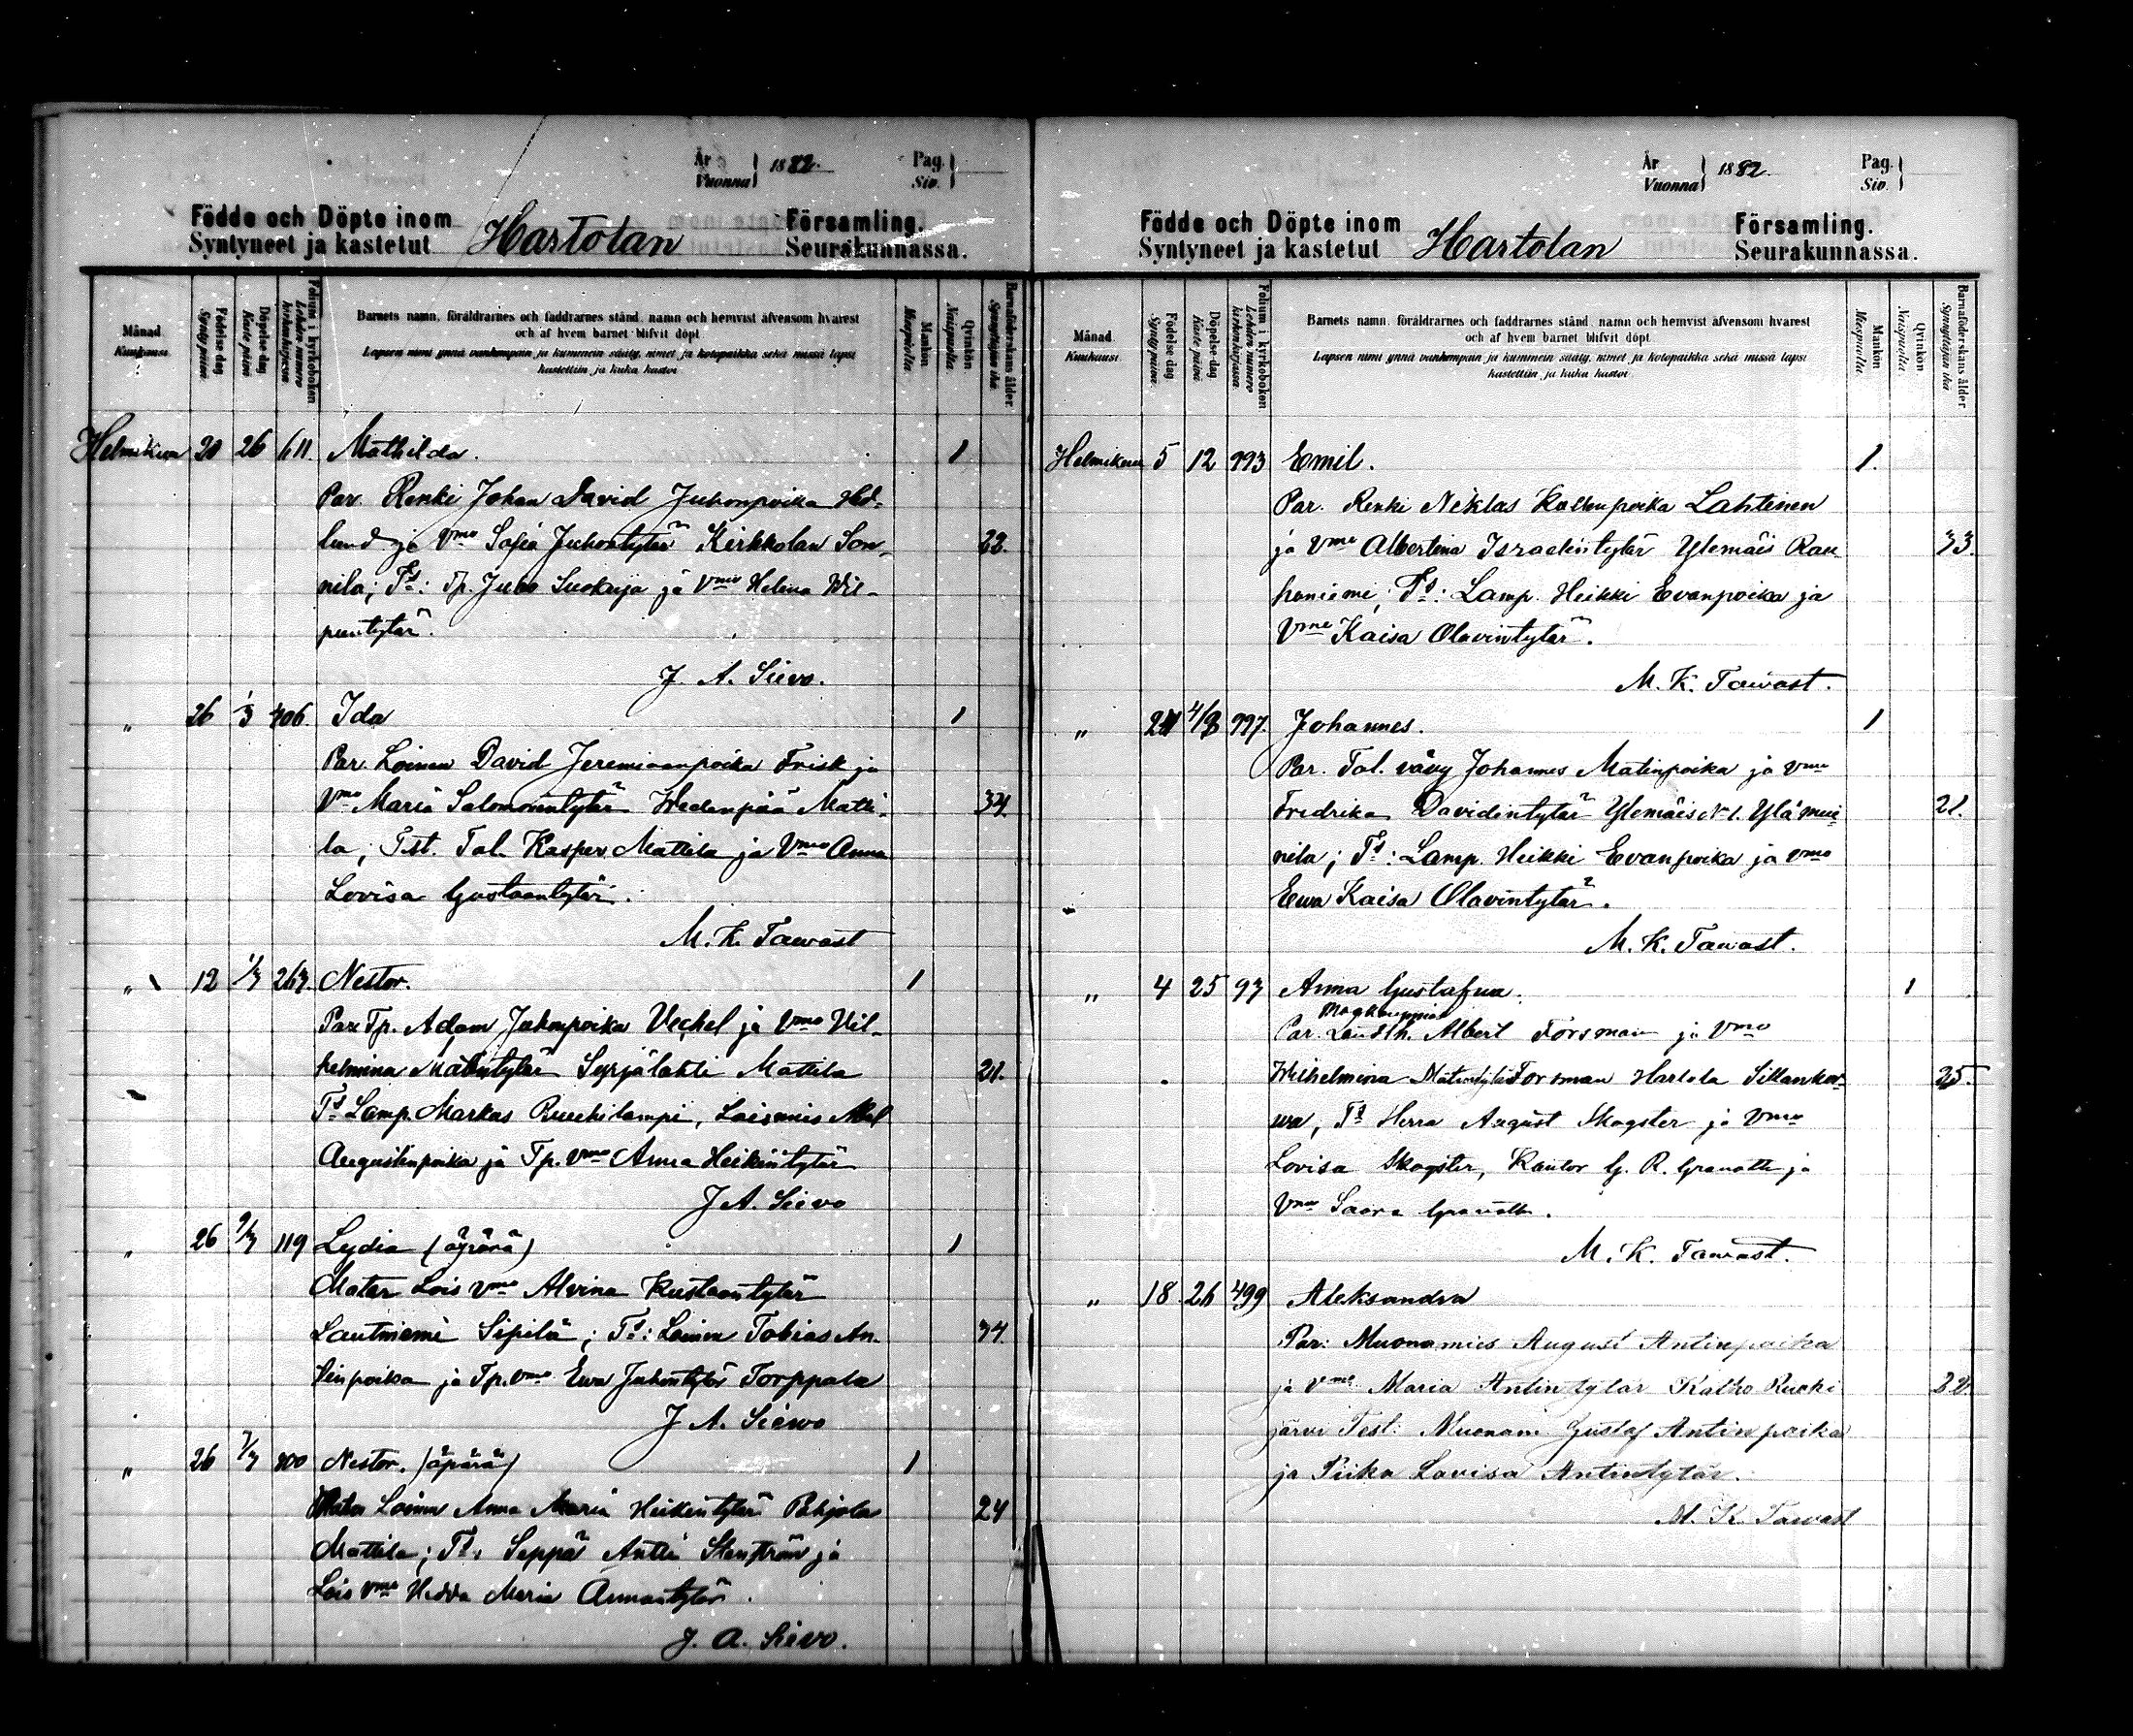 År Vuonna 1882. Pag. Siv.
Födde och Döpte inom Hartolan Församling.
Syntyneet ja kastetut Seurakunnassa.
Månad Kuukausi
Födelse dag Synty päivä
Döpelse dag Kaste päivä
Folium i kyrkoboken Lehden numero kirkonkirjassa
Barnets namn, föräldrarnes och faddrarnes stånd, namn och hemvist äfvensom hvarest
och af hvem barnet blifvit döpt.
Lapsen nimi ynnä vanhempain ja kummein sääty, nimet ja kotopaikka sekä missä lapsi
kastettiin ja kuka kastoi
Mankön Miespuolia
Qvinkön Naispuolia
Barnaföderskans ålder Synnyttäjän ikä
Helmikuu 20 26 611. Mathilda. 1
Par. Renki Johan David Juhonpoika Hed-
lund ja Vmo Sofia Juhontytär Kirkkolan Son- 22.
nila; Td: Tp. Juho Suokuja ja Vmo Helena Wil-
puntytär.
J. A. Sievo.
" 26 1/3 406. Ida 1
Par. Loinen David Jeremiaanpoika Frisk ja
Vmo Maria Salomonintytär Hedenpää Matti- 34.
la; Tst. Tal. Kasper Mattila ja Vmo Anna
Lovisa Gustaantytär.
M. K. Tawast
" 12 1/3 267. Nestor. 1
Par. Tp. Adam Juhonpoika Vechel ja Vmo Vil-
helmina Matintytär Syrjälahti Mattila 21.
Td Lamp. Markus Ruuhilampi, Loismies Abel
Augustinpoika ja Tp. vmo Anna Heikintytär
J A. Sievo
" 26 9/3 119 Lydia (äpärä) 1
Mater Lois vmo Alvina Kustaantytär
Lautniemi Sipilä; Td: Loinen Tobias An- 34.
tinpoika ja Tp. vmo Ewa Juhontytär Torppala
J A. Sievo
" 26 7/3 800 Nestor. (äpärä) 1
Mater Loinen Anna Maria Heikintytär Pohjola 24
Mattila; Td: Seppä Antti Stenström ja
Lois vmo Hedda Maria Annantytär.
J. A. Sievo.
År Vuonna 1882. Pag. Siv.
Födde och Döpte inom Hartolan Församling.
Syntyneet ja kastetut Seurakunnassa.
Månad Kuukausi
Födelse dag Synty päivä
Döpelse dag Kaste päivä
Folium i kyrkoboken Lehden numero kirkonkirjassa
Barnets namn, föräldrarnes och faddrarnes stånd, namn och hemvist äfvensom hvarest
och af hvem barnet blifvit döpt.
Lapsen nimi ynnä vanhempain ja kummein sääty, nimet ja kotopaikka sekä missä lapsi
kastettiin ja kuka kastoi.
Mankön Miespuolia.
Qvinkön Naispuolia.
Barnaföderskans ålder Synnyttäjän ikä
Helmikuu 5 12 993 Emil. 1.
Par. Renki Neklas Kallenpoika Lahtinen
ja Vmo Albertina Israelintytär Ylemäis Rau- 33.
haniemi; Td: Lamp. Heikki Evanpoika ja
Vmo Kaisa Olavintytär.
M. K. Tawast.
" 21 4/3 997. Johannes. 1
Par. Tal. vävy Johannes Matinpoika ja vmo
Fredrika Davidintytär Ylemäis No 1. Ylä mui- 21.
nila; Td: Lamp. Heikki Evanpoika ja vmo
Ewa Kaisa Olavintytär.
M. K. Tawast.
" 4 25 97 Anna Gustafva. 1
Maakauppias
Par. Landth. Albert Forsman ja Vmo
Wilhelmina Matintytär Forsman Hartola Sillankor- 25.
wa, Td Herra August Skogster ja Vmo
Lovisa Skogster, Kantor G. R. Granatt ja
Vmo Saara Granatt.
M. K. Tawast.
" 18 26 499 Aleksandra
Par: Muonamies August Antinpoika
ja vmo Maria Antintytär Kalho Ruoki 22.
järvi Test: Muonam Gustaf Antinpoika
ja Piika Lovisa Antintytär.
M. K. Tawast